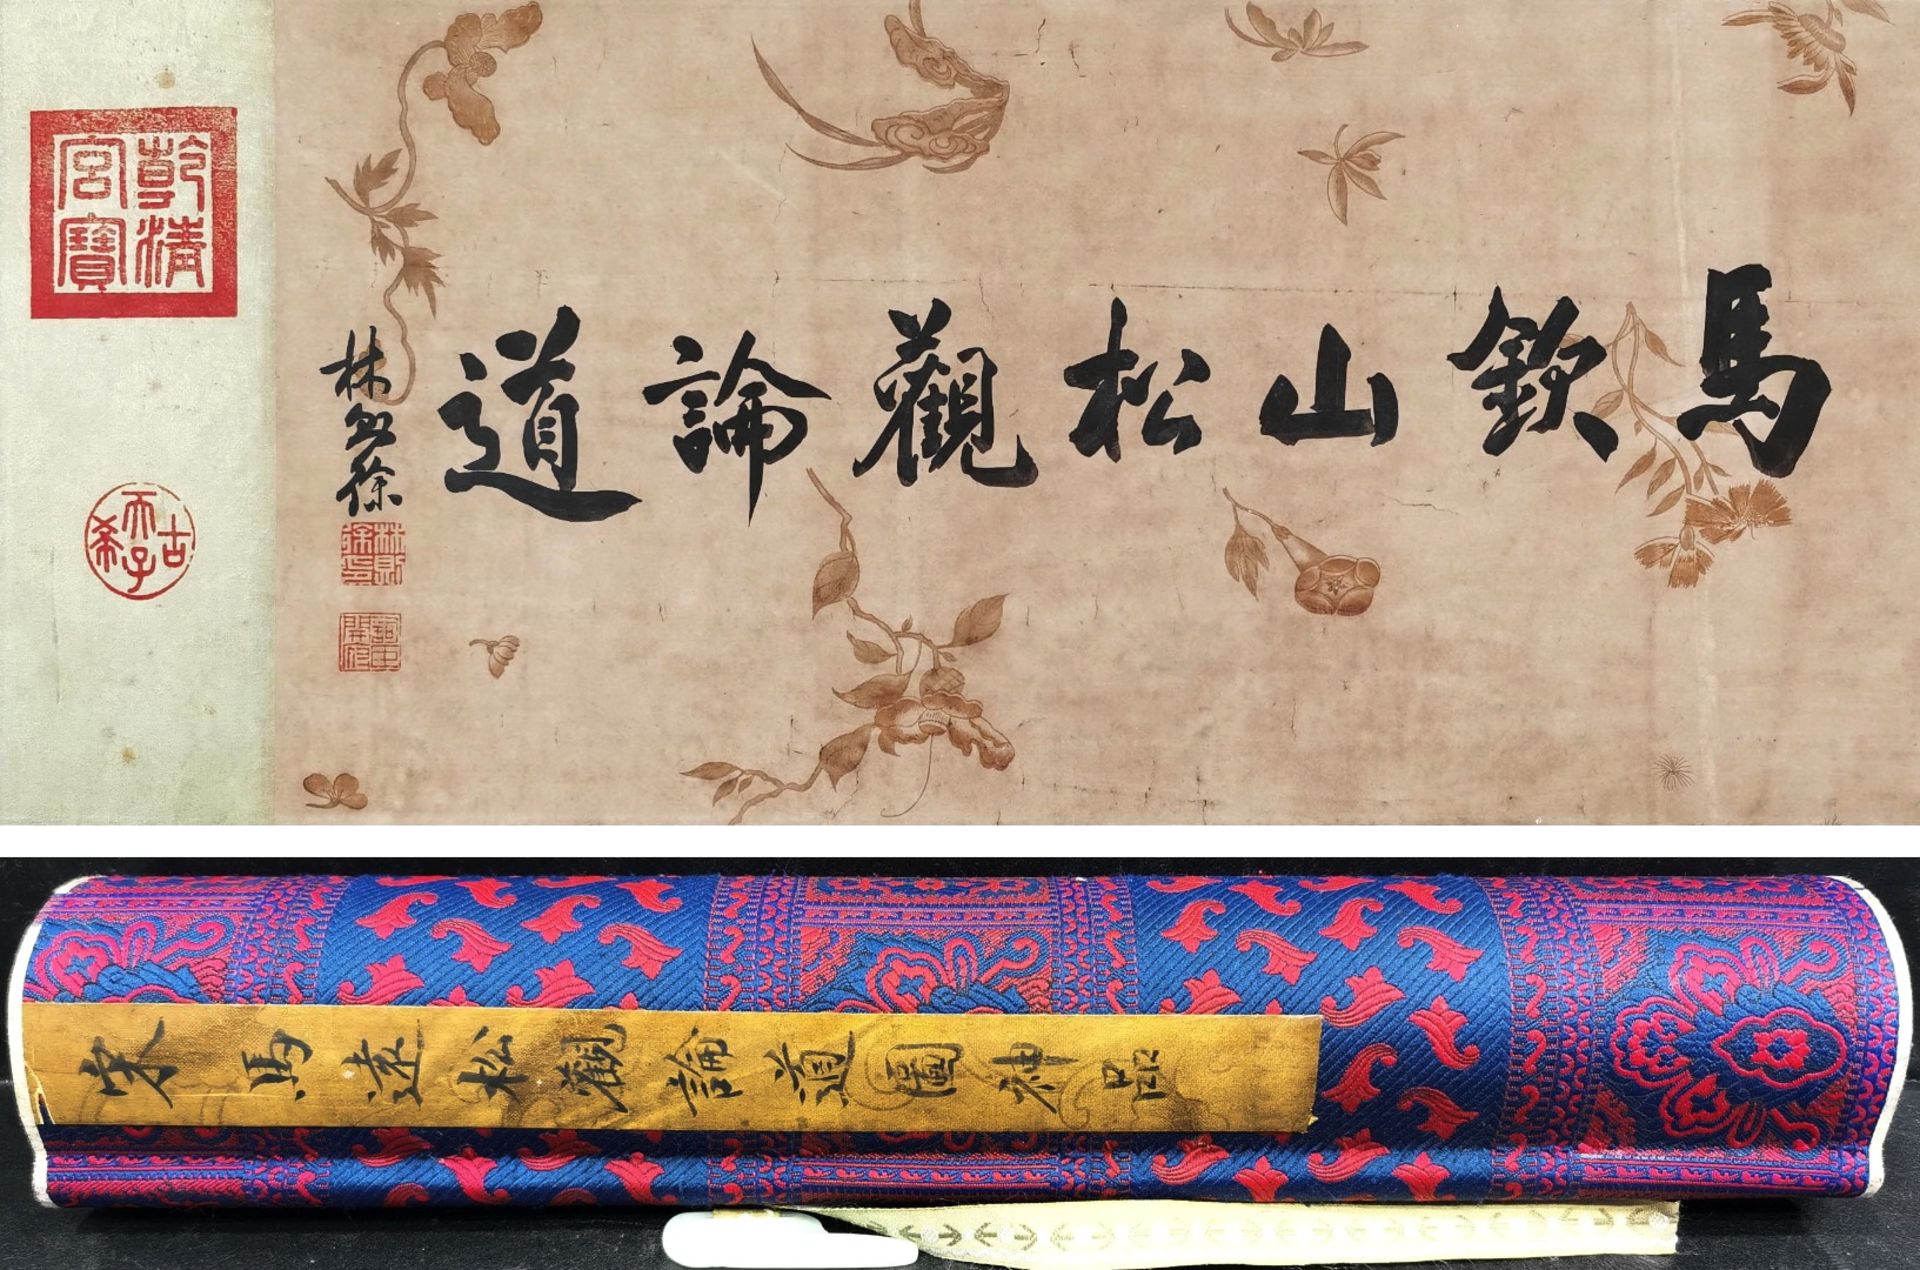 馬欽山松觀論道
林則徐
林則徐印
乾清宮寶
古希天子
宋馬遠松觀論道圖神品